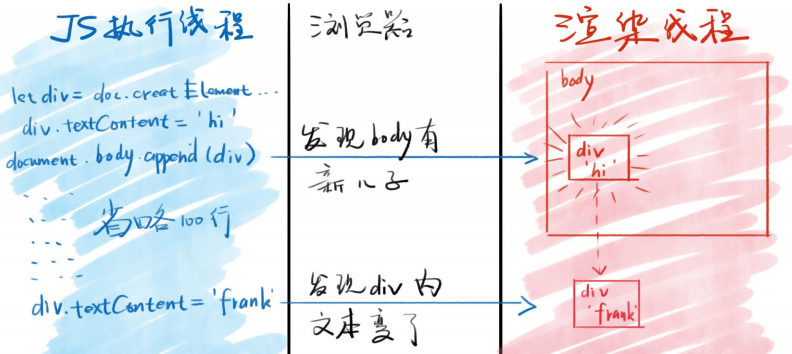 JS执行线程
let div = doc.creatElement...
div.textContent = 'hi'
document.body.append(div)
省略100行
div.textContent = 'frank'
浏览器
发现body有
新儿子
发现div内
文本变了
渲染线程
body
div
'hi'
div
'frank'